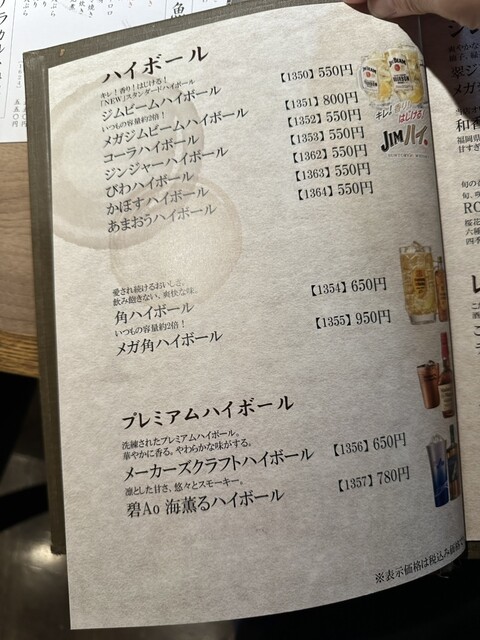 ハイボール
キレ！香り！はじける！
「NEW」スタンダードハイボール
ジムビームハイボール 【1350】550円
いつもの容量約2倍！
メガジムビームハイボール 【1351】800円
コーラハイボール 【1352】550円
ジンジャーハイボール 【1353】550円
びわハイボール 【1362】550円
かぼすハイボール 【1363】550円
あまおうハイボール 【1364】550円
キレ!香り!はじける!
JIMハイ。
愛され続けるおいしさ。
飲み飽きない、爽快な味。
角ハイボール 【1354】650円
いつもの容量約2倍！
メガ角ハイボール 【1355】950円
プレミアムハイボール
洗練されたプレミアムハイボール。
華やかに香る。やわらかな味がする。
メーカーズクラフトハイボール 【1356】650円
凛とした甘さ、悠々とスモーキー。
碧Ao 海薫るハイボール 【1357】780円
※表示価格は税込み価格で
魚
メガ
和香
福岡県
甘すぎ
RO
六種
四季